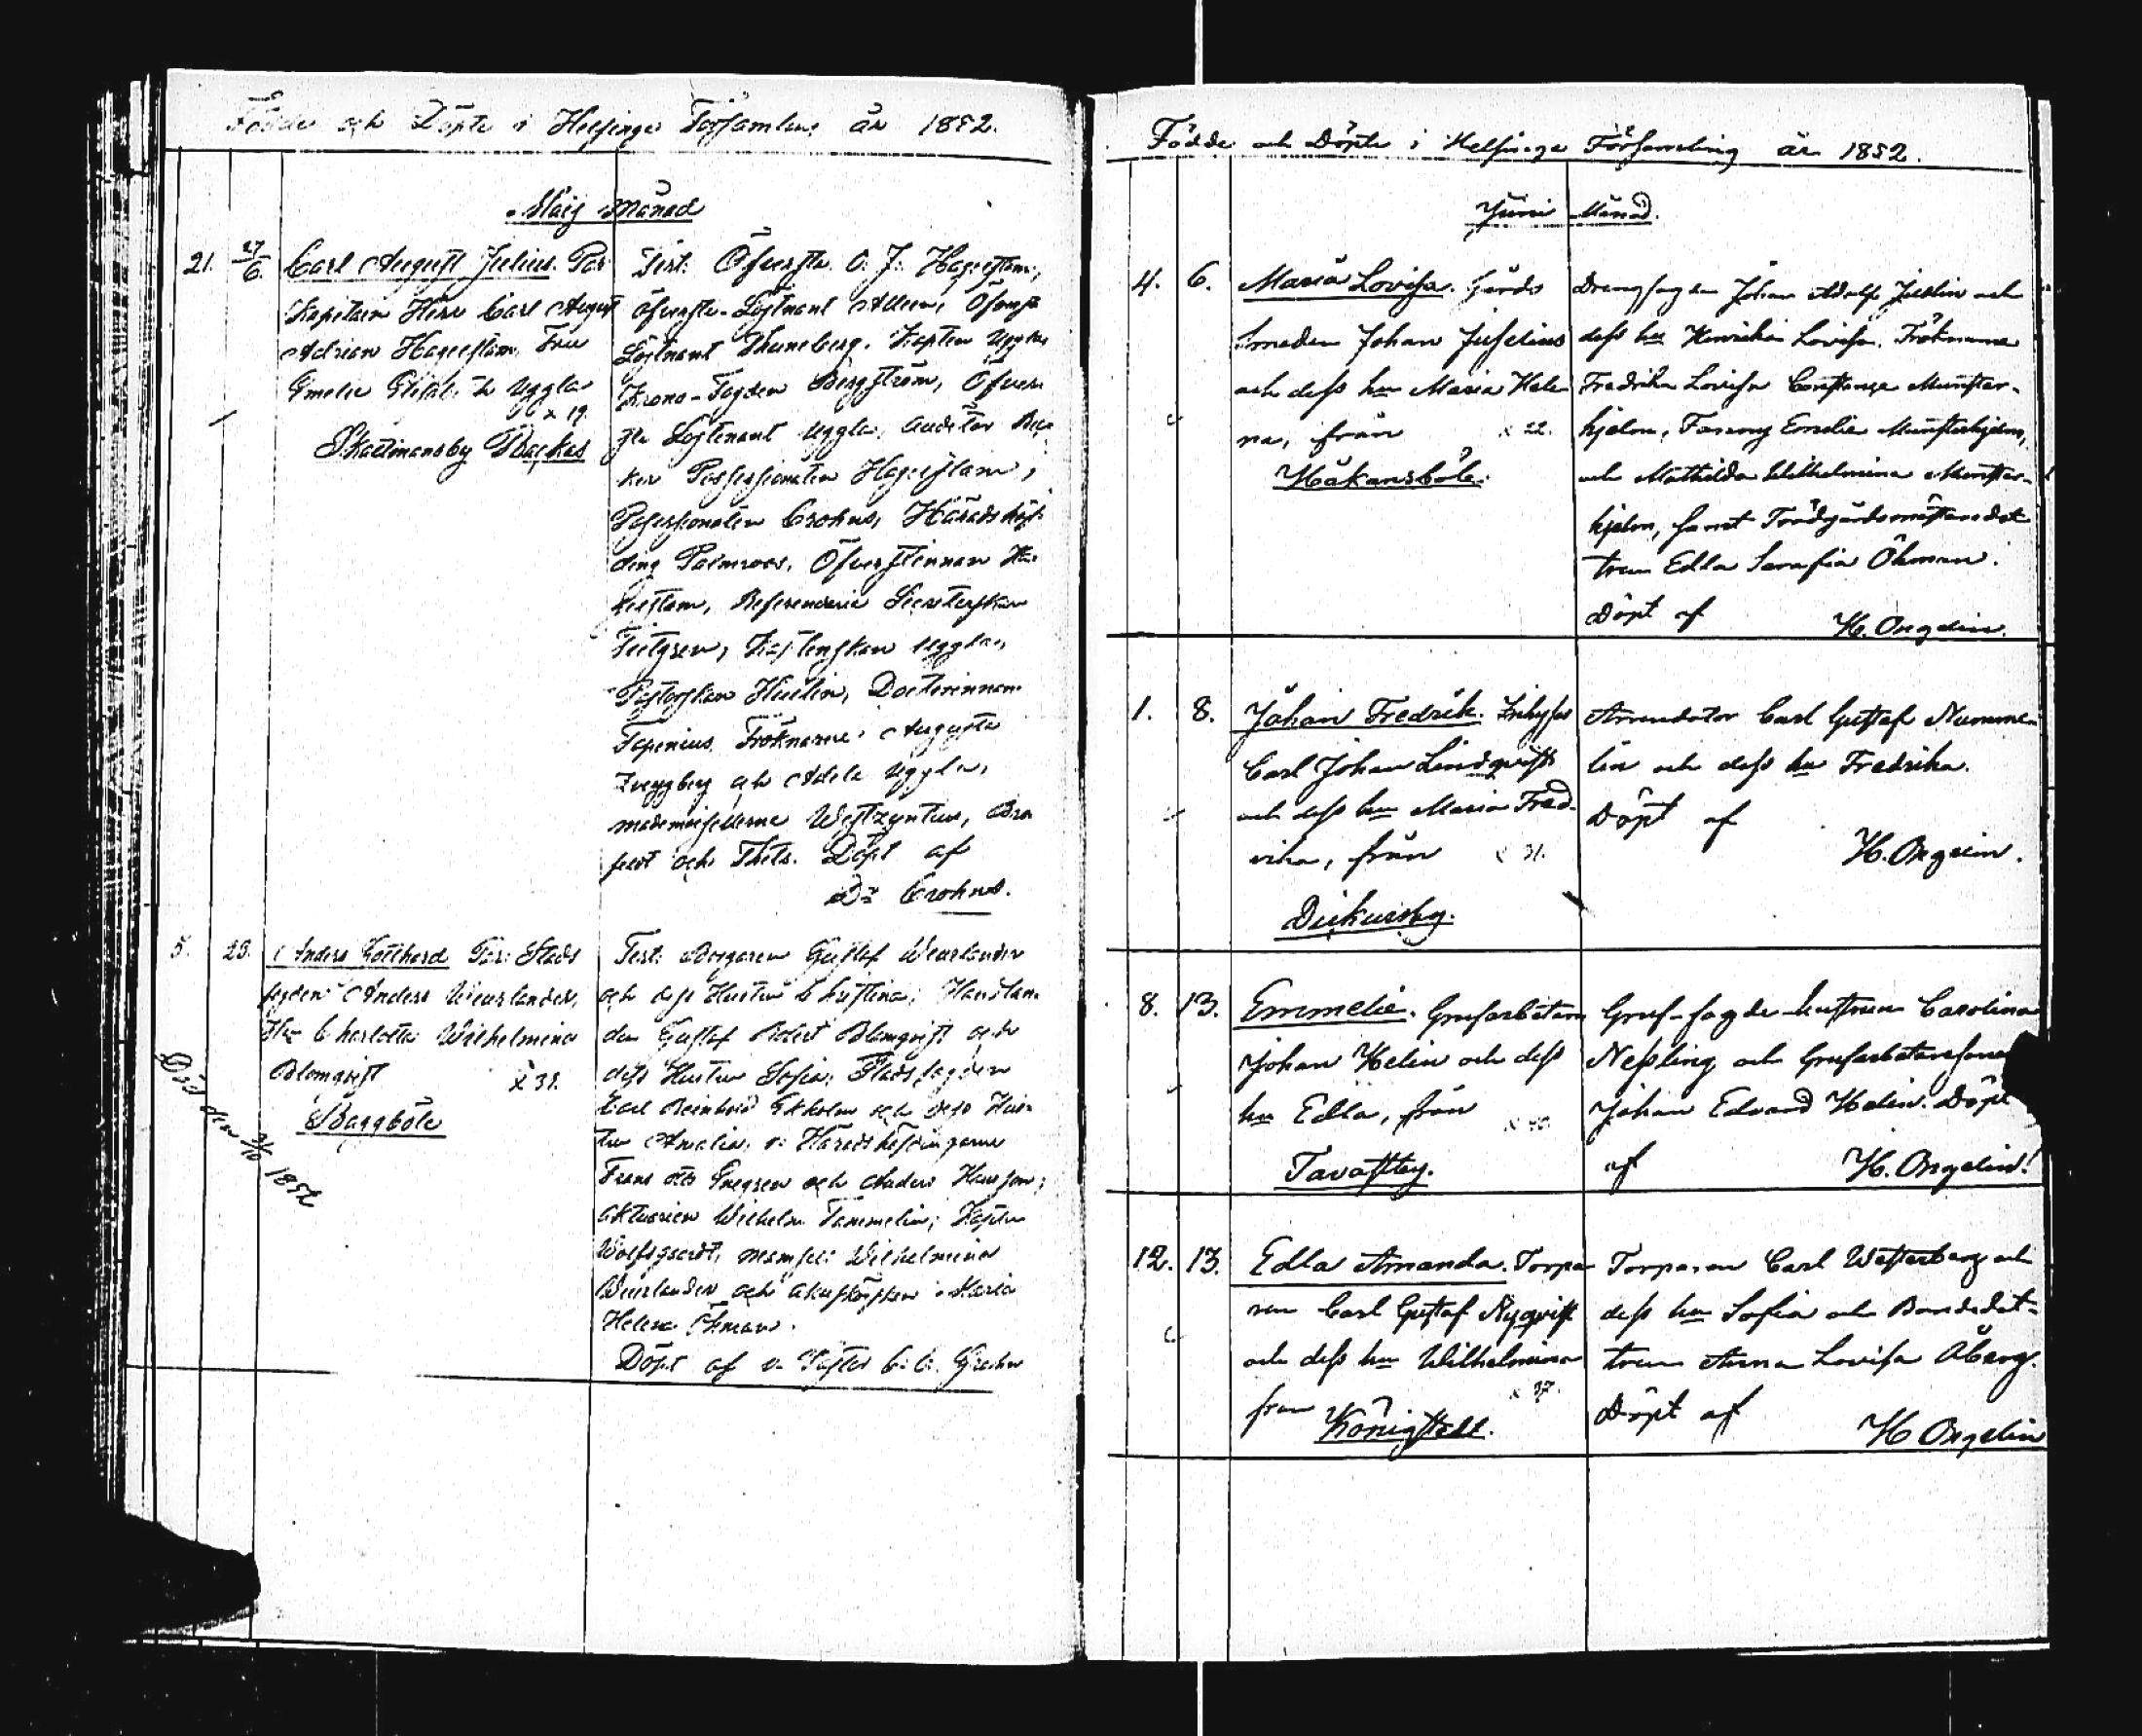 Födde och Döpte i Helsinge Församling år 1852.
Maij Månad
21. 27/6. Carl August Julius. Par:
Kapitain Herr Carl August
Adrian Hagelstam, Fru
Emelie Elisab: h Uggla
x 19.
Skattmansby Backas
Test: Öfverste O. J. Hagelstam,
Öfverste-Löjtnant Öfverste
Löjtnant Thuneberg. Kapten Uggla,
Krono-Fogden Bergström, Öfver-
ste Löjtenant Uggla, Auditör
Possessionaten Hagelstam,
Possessionaten Crohns, Häradshöf-
ding Palmroos, Öfverstinnan Ha-
gelstam, Referendarie Secreterskan
Kaptenskan Uggla,
Pastorskan Doctorinnan
Fröknarne Augusta
och Adele Uggla,
mademoisellerna
och Döpt af
Dr Crohns.
5. 23. Anders Gotthard Par: Stads
fogden Anders Weurlander,
Hu Charlotta Wilhelmina
Blomqvist x 31.
Baggböle
Död den 3/10 1852
Test: Borgaren Gustaf Weurlander
och dess Hustru Christina; Handlan-
den Gustaf Robert Blomqvist och
dess Hustru Sofia; Stadsfogden
Carl Reinhold Ekholm och dess Hus-
tru Amalia; v. Häradshöfdingarne
Frans och Anders Hansson;
Aktuarien Wilhelm Tammelin; Kapten
Mamsell Wilhelmina
Weurlander och Maria
Helena Öhman.
Döpt af v. Pastor C. C.
Födde och Döpte i Helsinge Församling år 1852.
Juni Månad.
4. 6. Maria Lovisa. Gårds
Smeden Johan Juselius
och dess hu Maria Hele-
na, från x 22.
Håkansböle.
Drengfogden Johan Adolf och
dess hu Henrika Lovisa. Fröknarna
Fredrika Lovisa Constance Munster-
hjelm, Fanny Emelie Munsterhjelm,
och Mathilda Wilhelmina Munster-
hjelm, samt Trädgårdsmästaredot-
tren Edla Serafia Öhman.
Döpt af H. Ongelin.
1. 8. Johan Fredrik. Inhyses
Carl Johan Lindqvist
och dess hu Maria Fred-
rika, från x 31.
Dickursby.
Arrendator Carl Gustaf Numme-
lin och dess hu Fredrika.
Döpt af
H. Ongelin.
8. 13. Emmelie. Grufarbetaren
Johan Helin och dess
hu Edla, från x 40.
Tavastby.
Gruf-fogde-hustrun Carolina
Nessling och Grufarbetaresonen
Johan Edvard Helin. Döpt
af H. Ongelin!
12. 13. Edla Amanda. Torpa-
ren Carl Gustaf Nyqvist
och dess hu Wilhelmina
från x 37.
Königstedt.
Torparen Carl Westerberg och
dess hu Sofia och Bondedot-
tren Anna Lovisa Åberg.
Döpt af
H Ongelin